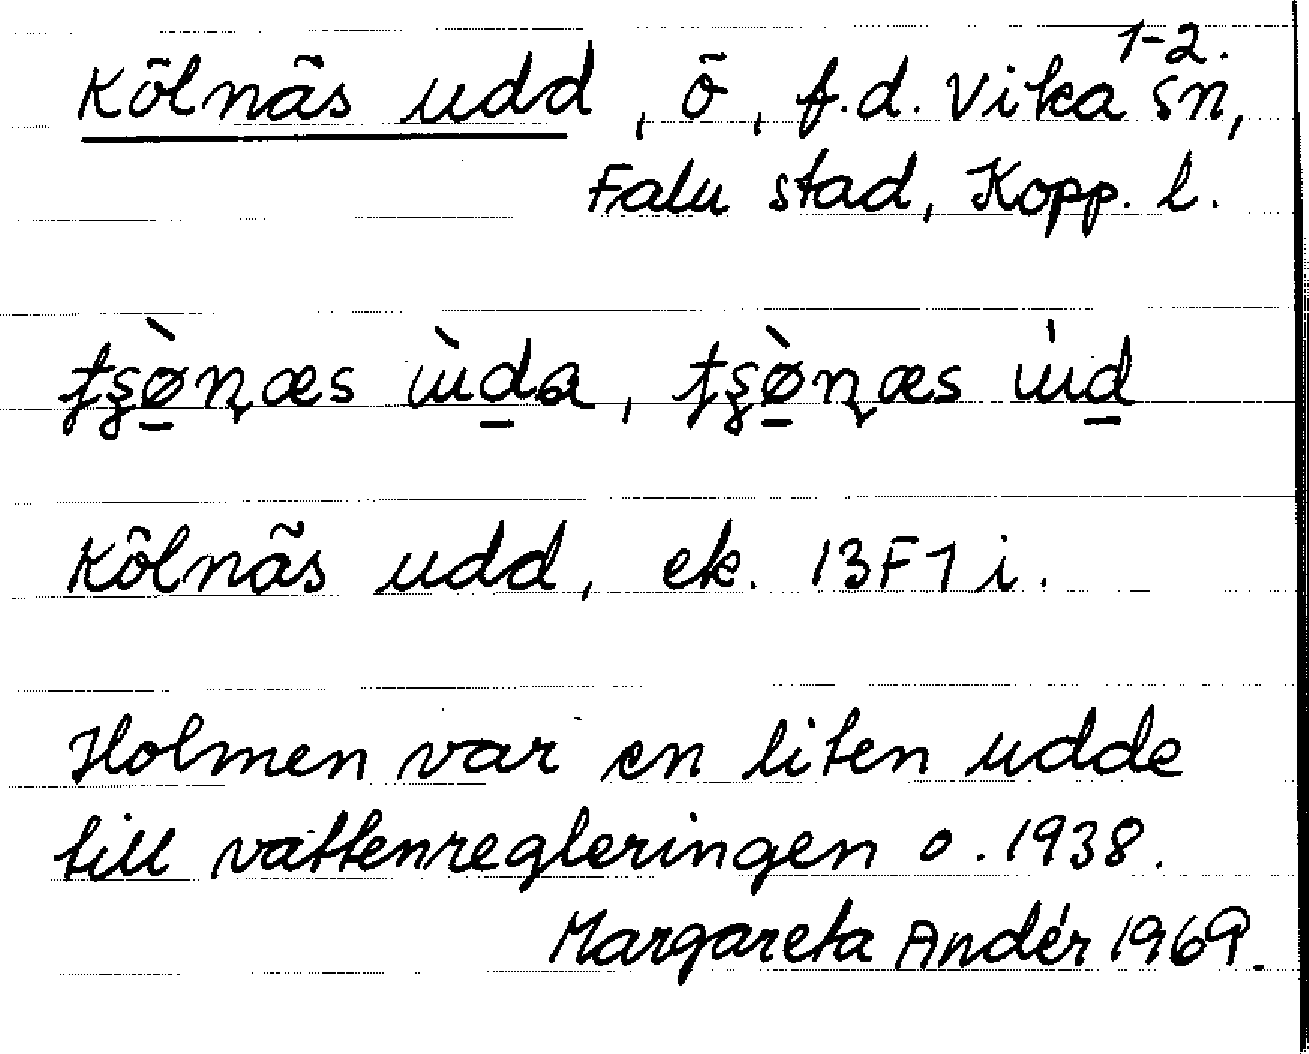 1-2.
Kölnäs udd, ö, f.d. Vika sn,
Falu stad, Kopp. l.
Kölnäs udd, ek. 13F1i.
Holmen var en liten udde
till vattenregleringen o. 1938.
Margareta Andér 1969.